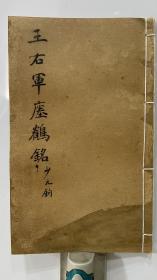 王右軍瘞鶴銘